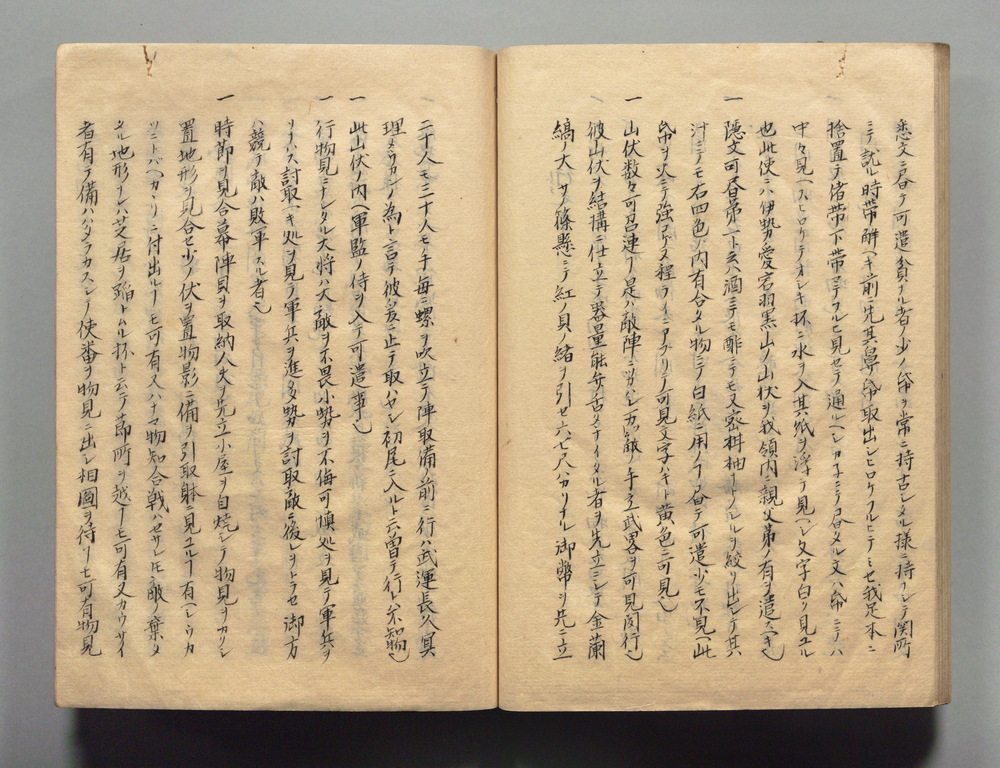 悉文ニ沓テ可遣貧ナル者ノ少ノ帋ヲ常ニ持古シメル様ニ持クシテ関所
ニテ訛ル時帯解ヘキ前ニ先其鼻帋取出シヒロケフルヒテミセ我足本ニ
捨置テ偖帯下帯ニテフルヒ見セテ通ルヘシカ子ニテ沓タル文ハ帋ニテハ
中々見ヘスヒロクテオシキ杯ニ水ヲ入其紙ヲ浮テ見ヘシ文字白ク見ユル
也此使ニハ伊勢愛宕羽黒山ノ山伏ヲ我領内ニ親父弟ノ有ヲ遣スヘキ也
一 隠文可沓第一ト云ハ酒ニテモ酢ニテモ又密柑柚ナトノシルヲ絞リ出シテ其
汁ニテモ右四色ノ内有合タル物ニテ白紙ニ用ノフ沓テ可遣少モ不見此
帋ヲ火ニテ強クコケヌ程ライニアフリ可見文字ハキト黄色ニ可見也
一 山伏数々可召連ナ是ハ敵陣ニツカヒカハ敵ノ手立武畧ヲ可見聞行也
彼山伏ヲ結構ニ仕立テ器量能弁舌スナイタル者ヲ先立ニシテ金襴
縞ノ大ナノ篠懸ニテ紅ノ貝ノ緒ヲ引セ六七尺ハカリナル御幣ヲ先ニ立
二十人モ三十人モ手毎ニ螺ヲ吹立テ陣取備ノ前ニ行ハ武運長久冥
理メウカノ為ト言テ彼ヲ爰ニ止テ取ハヤシ初尾入ルト云曽テ行ニ不知物也
一 此山伏ノ内ヘ軍監ノ侍ヲ入テ可遣事也
一 行物見ニシタル大将ハ大敵ヲ不畏小勢ヲ不侮可慎処ヲ見テ軍兵ヲ
ソナハス討取ヘキ処ヲ見テ軍兵ヲ進多勢ヲ討取敵ニ後レヲトラセ御方
ハ競テ敵ハ敗軍スル者也
一 時節ヲ見合幕陣貝ヲ取納人夫ヲ先立小屋ヲ自焼シテ物見ヲカクシ
置地形ヲ見合セ少ノ伏ヲ置物影ニ備ヲ引取躰ニ見ユルヿ有ヘシウカ
ツニトバヘカリニ付出ルヿモ可有スハナマ物知合戦ハセサレ𪜈敵ノ棄タ
メル地形ナレハ芝居ヲ踏トムル杯ト云テ節所ヲ越ヿモ可有又カウサイ
者有テ備ハハタラカスシテ使番ヲ物見ニ出シ相圖ヲ待ヿモ可有物見